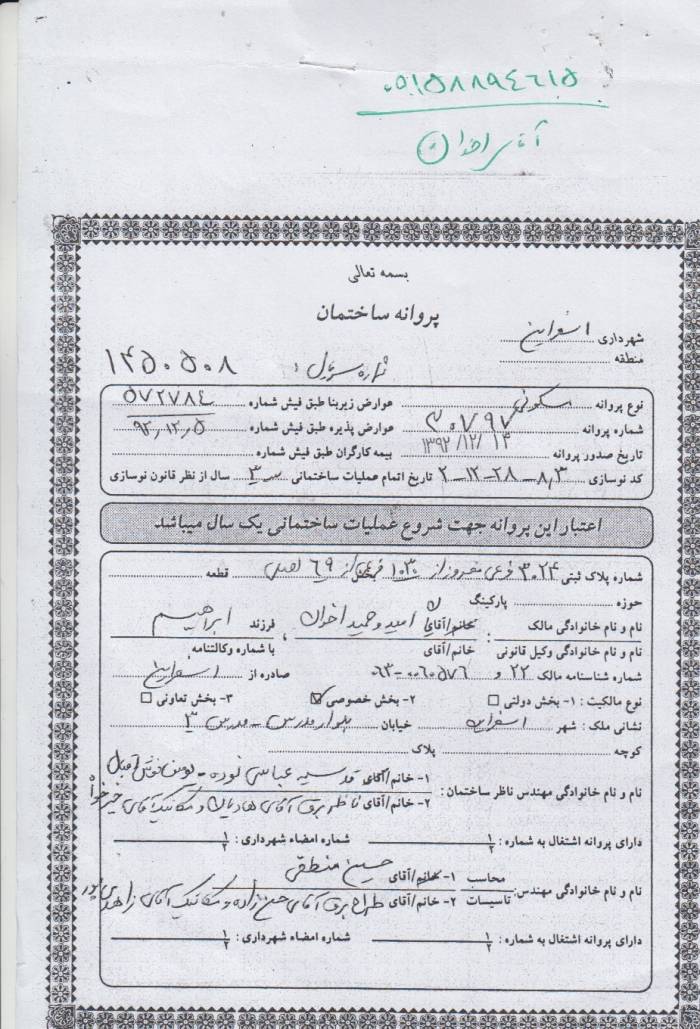 ۰۵۱۵۸۸۹۴۶۱۵
آقای اخوان
بسمه تعالی
پروانه ساختمان
شهرداری اسفراین
منطقه
شماره سریال: ۱۴۵۰۵۰۸
نوع پروانه: مسکونی عوارض زیربنا طبق فیش شماره ۵۷۲۷۸۴
شماره پروانه ۳۰۷۹۷ عوارض پذیره طبق فیش شماره ۹۲/۱۲/۵
تاریخ صدور پروانه ۱۳۹۲/۱۲/۱۴ بیمه کارگران طبق فیش شماره
کد نوسازی ۲-۱۲-۲۸-۸/۳ تاریخ اتمام عملیات ساختمانی ۳ سال از نظر قانون نوسازی
اعتبار این پروانه جهت شروع عملیات ساختمانی یک سال میباشد
شماره پلاک ثبتی ۳۰۲۴ فرعی مفروز از ۱۰۳۰ فرعی از ۶۹ اصلی قطعه
حوزه پارکینگ
نام و نام خانوادگی مالک : خانم/آقای امید و حمید اخوان فرزند ابراهیم
نام و نام خانوادگی وکیل قانونی خانم/آقای با شماره وکالتنامه
شماره شناسنامه مالک ۲۲ و ۰۶۳۰۰۶۰۵۷۶ صادره از اسفراین
نوع مالکیت : ۱- بخش دولتی ۲- بخش خصوصی ۳- بخش تعاونی
نشانی ملک : شهر اسفراین خیابان بلوار مدرس - مدرس ۳
کوچه پلاک
نام و نام خانوادگی مهندس ناظر ساختمان: ۱- خانم/آقای قدسیه عباسی نوده -
۲- خانم/آقای ناظر برق آقای هادیان و مکانیک آقای خیرخواه
دارای پروانه اشتغال به شماره : ۱ ۲ شماره امضاء شهرداری : ۱ ۲
نام و نام خانوادگی مهندس: محاسب ۱- خانم/آقای حسین منطقی
تاسیسات ۲- خانم/آقای طراح برق آقای و مکانیک آقای
دارای پروانه اشتغال به شماره : ۱ ۲ شماره امضاء شهرداری : ۱ ۲